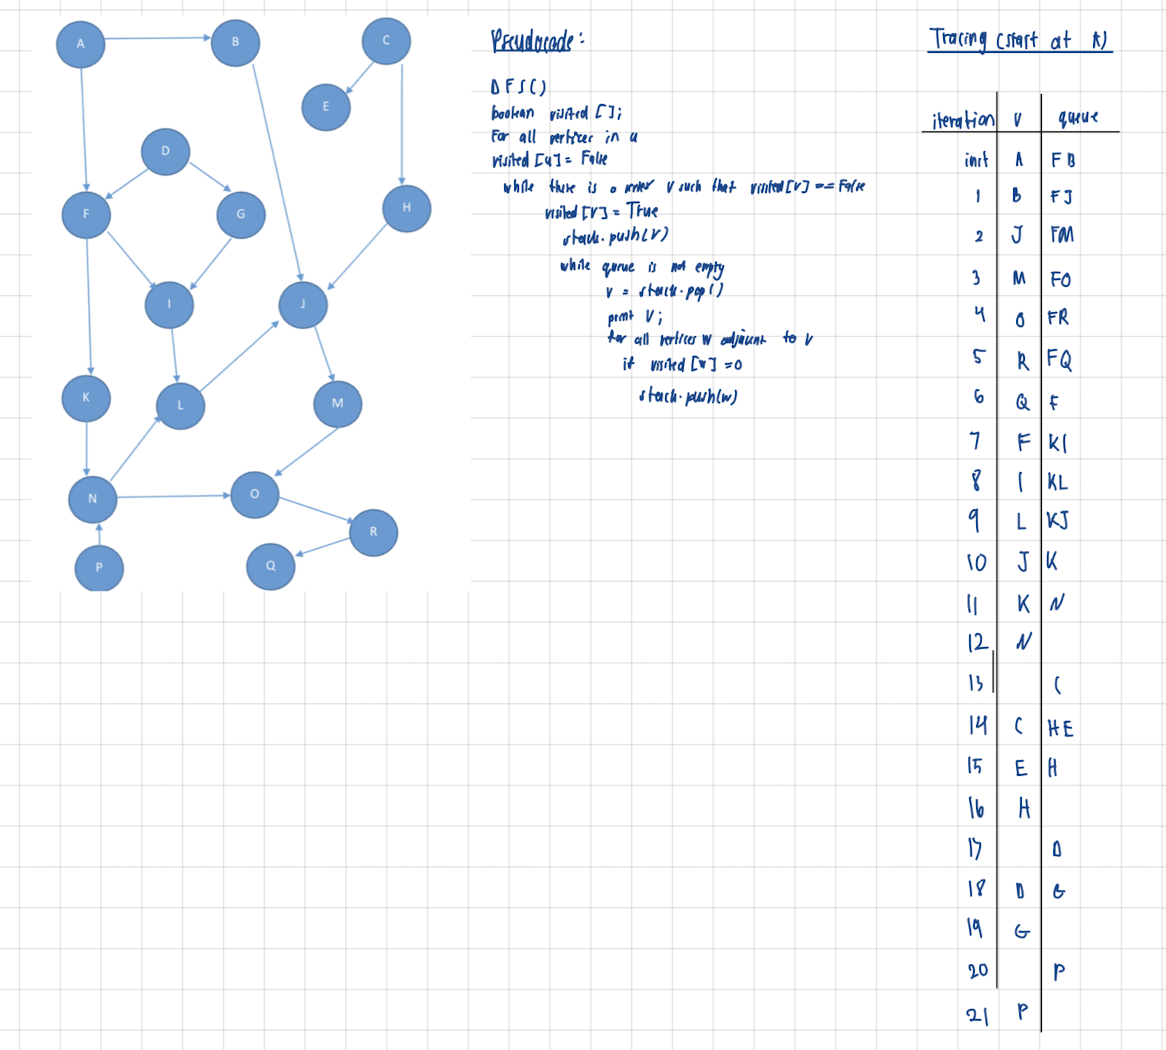 A
B
C
E
D
F
G
H
I
J
K
L
M
N
O
R
P
Q
Pseudocode:
DFS()
boolean visited [];
For all vertices in u
visited [u] = False
while there is a vertex V such that visited [V] == False
visited [V] = True
stack.push(V)
while queue is not empty
V = stack.pop()
print V;
for all vertices W adjacent to V
if visited [w] = 0
stack.push(w)
Tracing (start at A)
iteration V queue
init A F B
1 B F J
2 J F M
3 M F O
4 O F R
5 R F Q
6 Q F
7 F K I
8 I K L
9 L K J
10 J K
11 K N
12 N
13 C
14 C H E
15 E H
16 H
17 D
18 D G
19 G
20 P
21 P